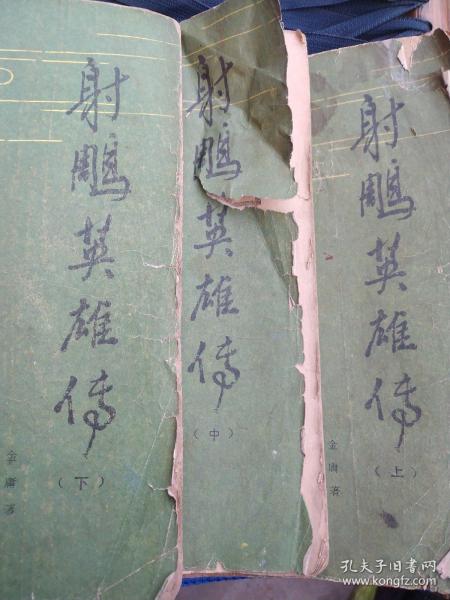 射鵰英雄傳
（下）
金庸著
射鵰英雄傳
（中）
射鵰英雄傳
（上）
金庸著
孔夫子旧书网
www.kongfz.com